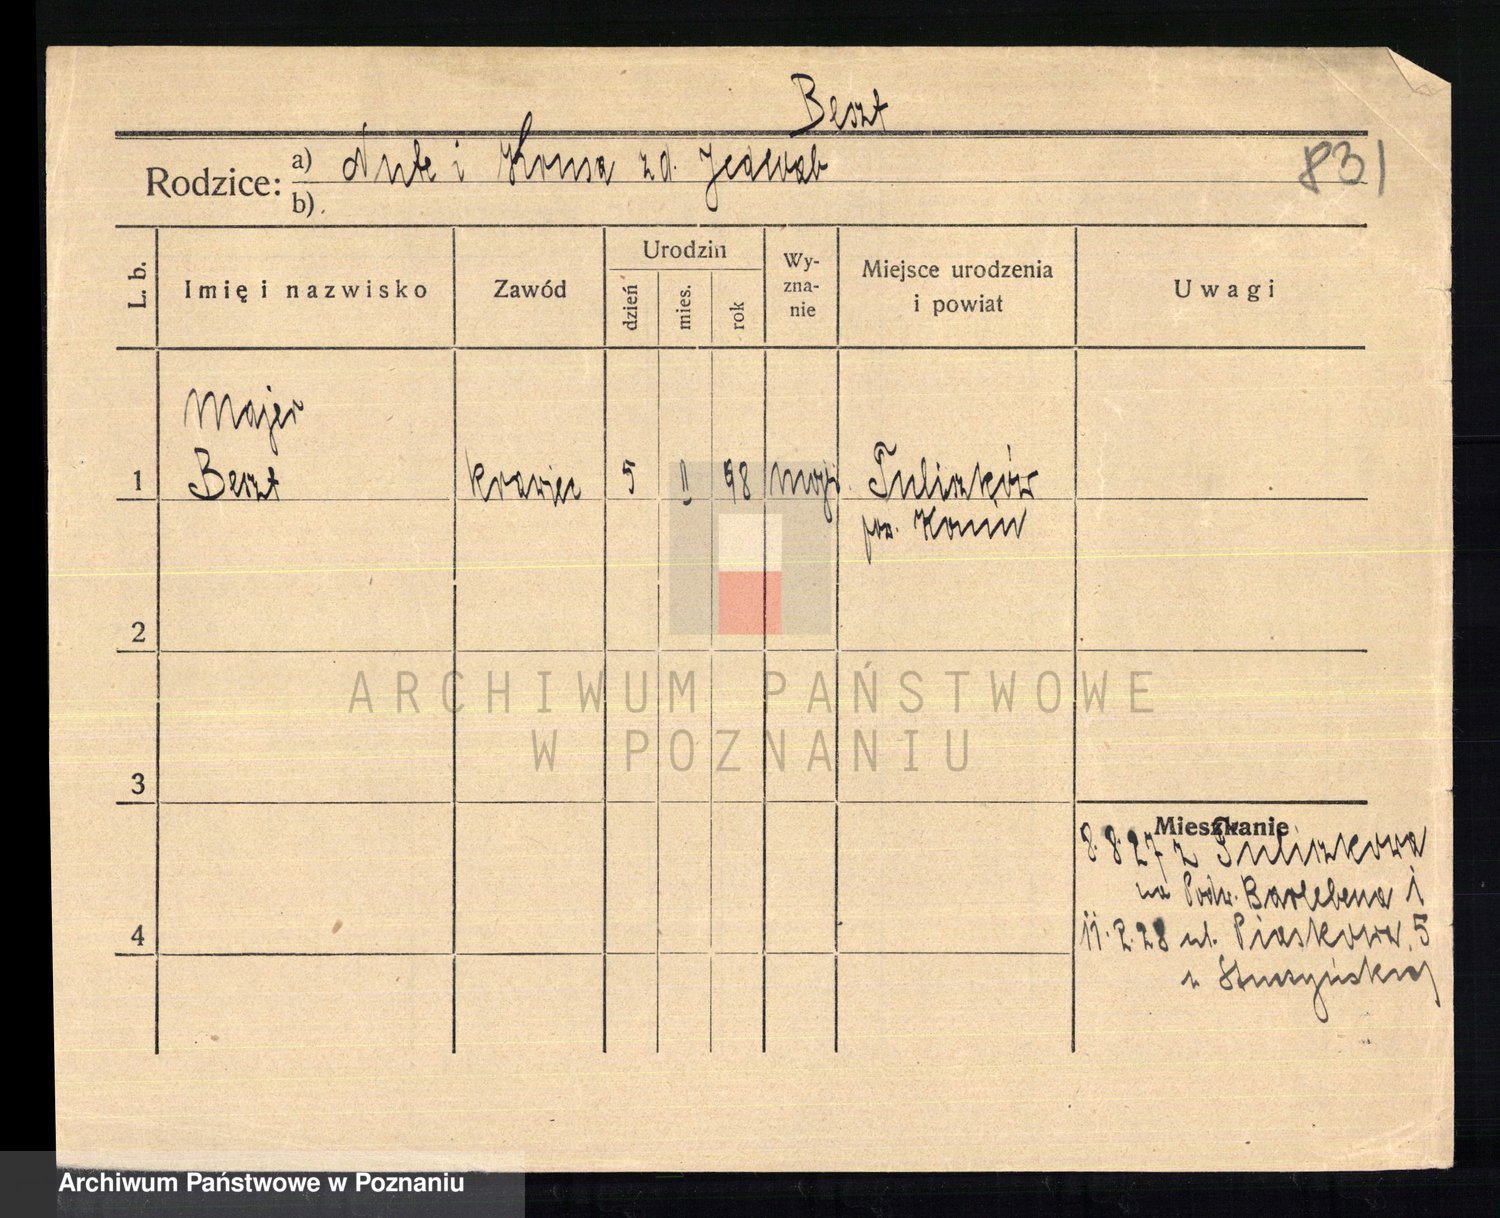 Beszt
Rodzice: a) Nute i Krusa z d. Jedwab
831
b)
L. b.
Imię i nazwisko
Zawód
Urodzin
dzień
mies.
rok
Wy-
zna-
nie
Miejsce urodzenia
i powiat
Uwagi
Majer
1 Beszt krawiec 5 II 98 mojż. Tuliszków
pow. Konin
2
3
Mieszkanie
8.8.27 z Tuliszkowa
na Podw. Barlebena 1
4
11.2.28 ul. Piaskowa 5
ARCHIWUM PAŃSTWOWE
W POZNANIU
Archiwum Państwowe w Poznaniu